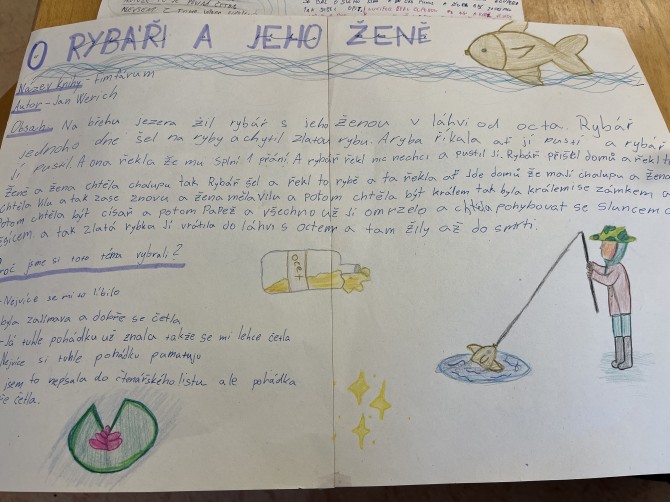 O RYBÁŘI A JEHO ŽENĚ
Název knihy - Fimfárum
Autor - Jan Werich
Obsah - Na břehu jezera žil rybář s jeho ženou v láhvi od octa. Rybář
jednoho dne šel na ryby a chytil zlatou rybu. A ryba říkala ať ji pustí a rybář
ji pustil. A ona řekla že mu splní 1 přání. A rybář řekl nic nechci a pustil ji. Rybář přišel domů a řekl to
ženě a žena chtěla chalupu tak Rybář šel a řekl to rybě a ta řekla ať jde domů že mají chalupu a žena
chtěla vilu a tak zase znovu a žena měla vilu a potom chtěla být králem tak byla králem i se zámkem a
potom chtěla být císař a potom Papež a všechno už ji omrzelo a chtěla pohybovat se sluncem a
měsícem a tak zlatá rybka ji vrátila do láhvi s octem a tam žily až do smrti.
Proč jsme si toto téma vybrali?
- Nejvíce se mi to líbilo
byla zajímavá a dobře se četla
- Já tuhle pohádku už znala takže se mi lehce četla
Nejvíce si tuhle pohádku pamatuju
jsem to nepsala do čtenářského listu ale pohádka
četla.
ocet